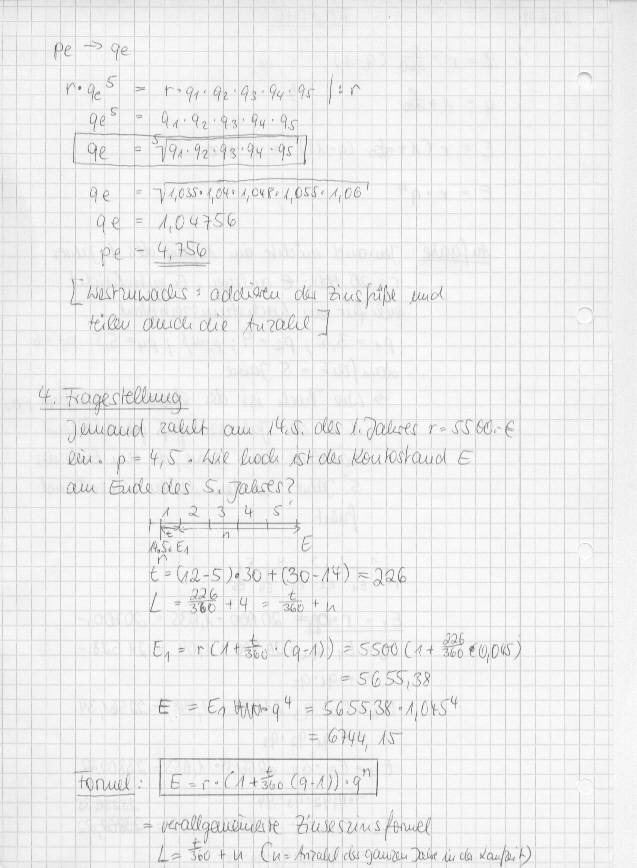 pe → qe
r · qe⁵ = r · q1 · q2 · q3 · q4 · q5 | : r
qe⁵ = q1 · q2 · q3 · q4 · q5
qe = ⁵√q1 · q2 · q3 · q4 · q5
qe = √1,035 · 1,04 · 1,048 · 1,055 · 1,06
qe = 1,04756
pe = 4,756
[Wertzuwachs = addieren der Zinsfüße und
teilen durch die Anzahl]
4. Fragestellung
Jemand zahlt am 14.5. des 1. Jahres r = 5500.-€
ein. p = 4,5. Wie hoch ist der Kontostand E
am Ende des 5. Jahres?
1 2 3 4 5
t n
14.5. E1 E
r
t = (12-5) · 30 + (30-14) = 226
L = 226/360 + 4 = t/360 + n
E1 = r (1 + t/360 · (q-1)) = 5500 (1 + 226/360 · 0,045)
= 5655,38
E = E1 · q⁴ = 5655,38 · 1,045⁴
= 6744,15
Formel: E = r · (1 + t/360 (q-1)) · qⁿ
= verallgemeinerte Zinseszinsformel
L = t/360 + n (n = Anzahl der ganzen Jahre in der Laufzeit)